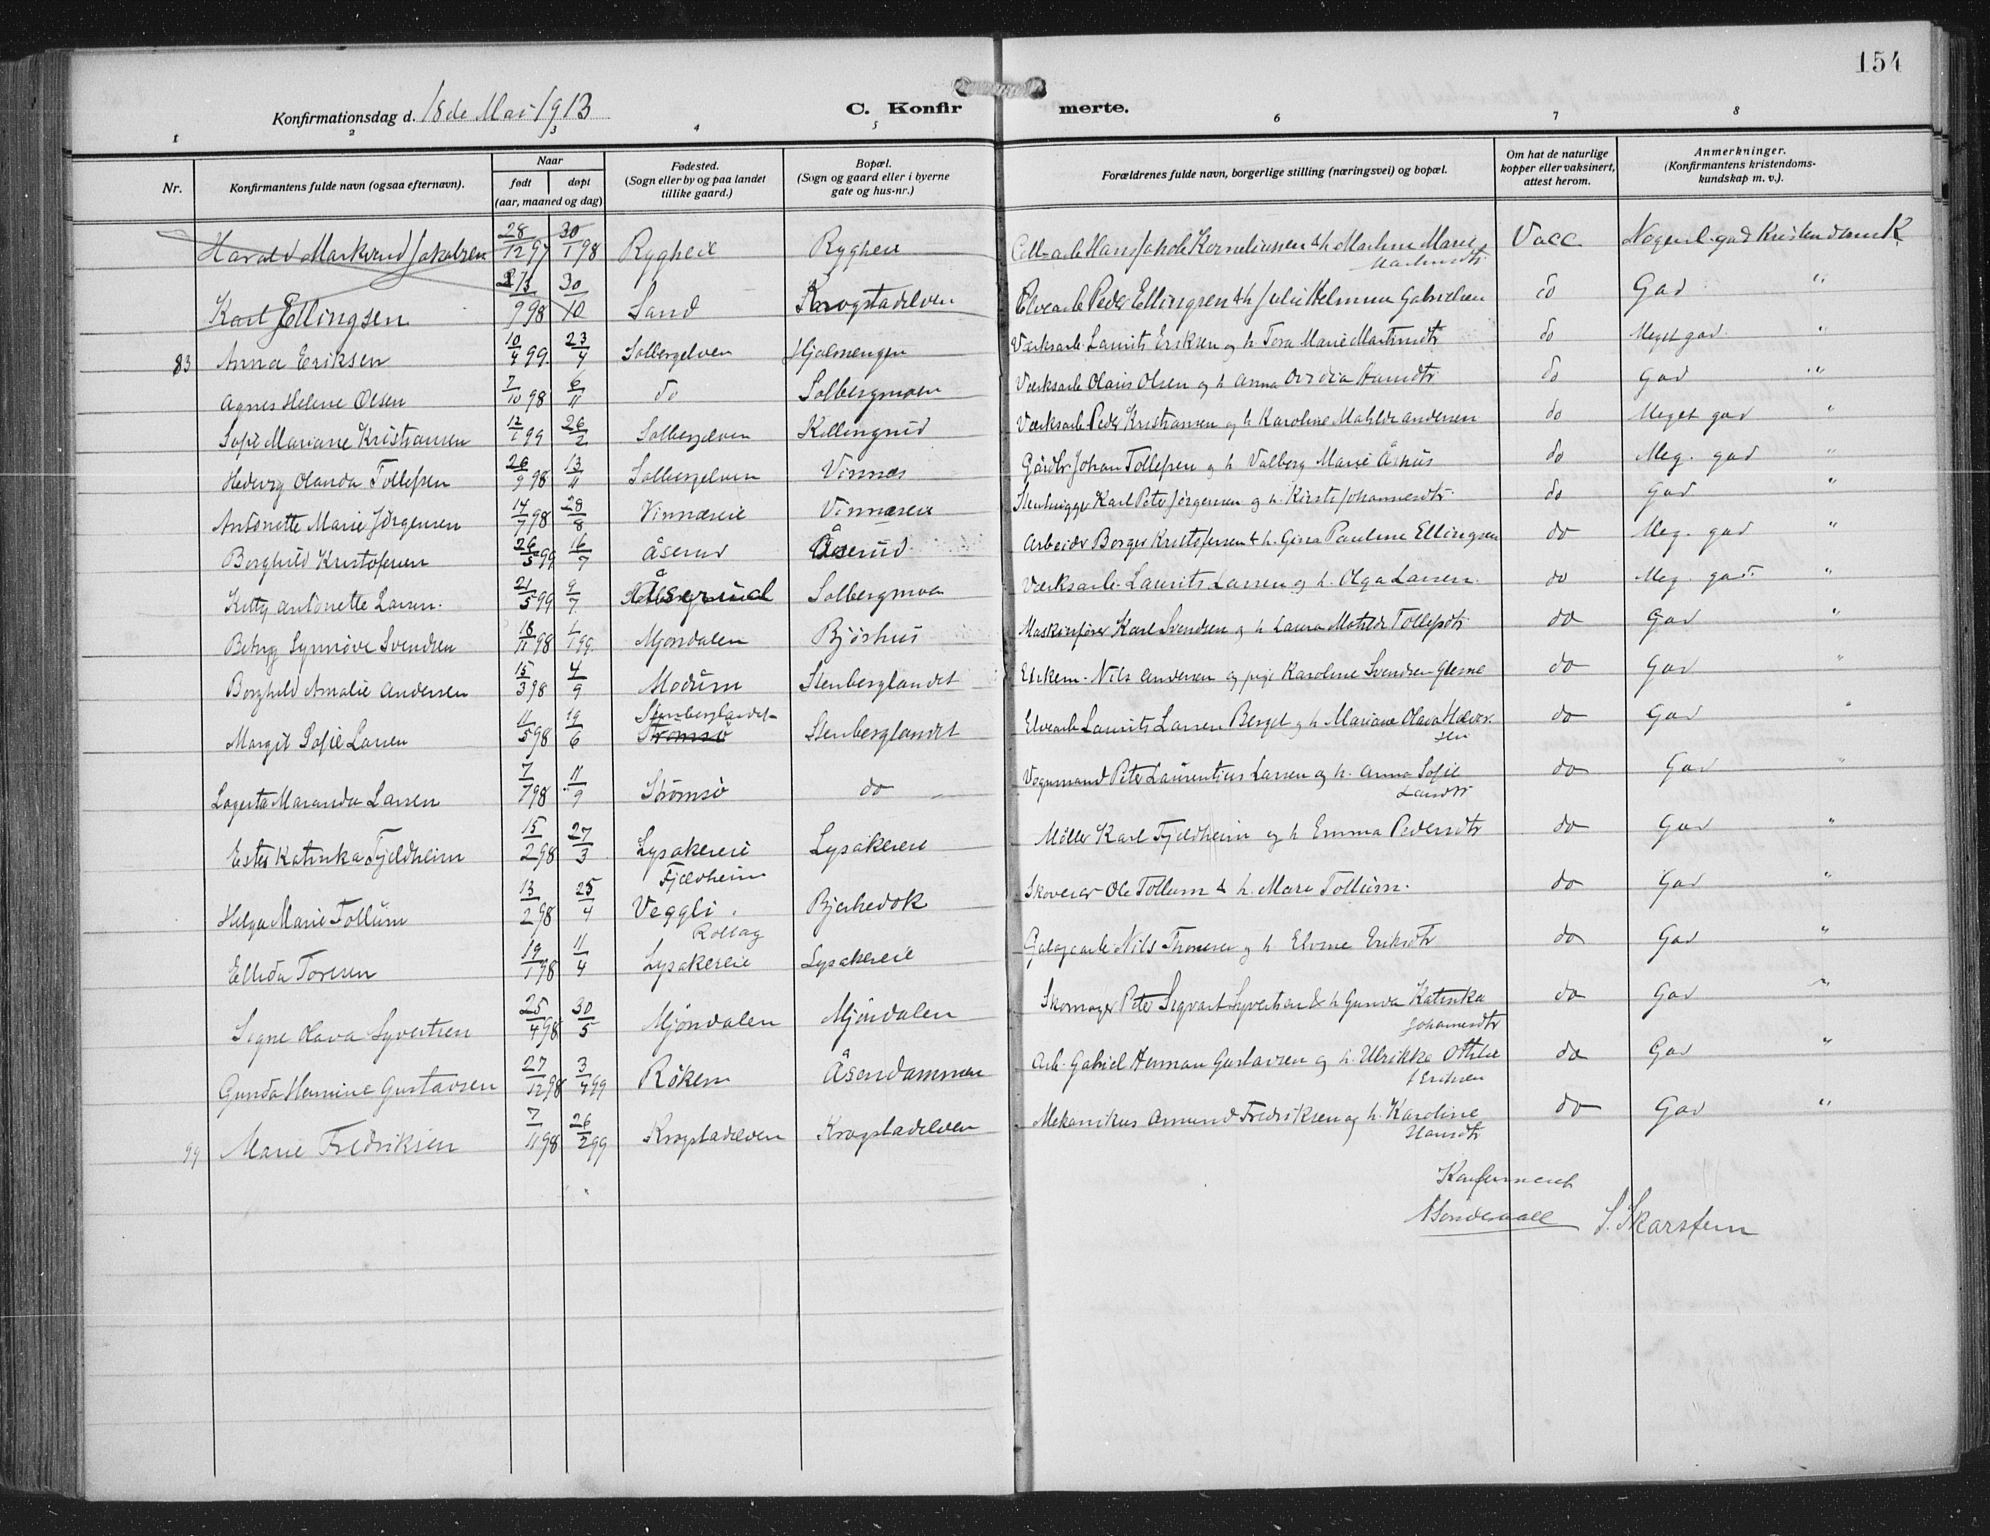 154
Konfirmationsdag d. 18de Mai 1913
C. Konfirmerte.
1 2 3 4 5 6 7 8
Nr.
Konfirmantens fulde navn (ogsaa efternavn).
Naar
født døpt
(aar, maaned og dag)
Fødested.
(Sogn eller by og paa landet
tillike gaard.)
Bopæl.
(Sogn og gaard eller i byerne
gate og hus-nr.)
Forældrenes fulde navn, borgerlige stilling (næringsvei) og bopæl.
Om hat de naturlige
kopper eller vaksinert,
attest herom.
Anmerkninger.
(Konfirmantens kristendoms-
kundskap m. v.).
Harald Jakobsen 28/12 97 30/1 98 Ryghei Hans Jakob Korneliussen & h. Marie Vacc
Karl Ellingsen 9 98 30/10 Sand Krogstadelven Elvearb. Peder Ellingsen & h. Julie Gabrielsen do God "
83 Anna Eriksen 10/4 99. 23/4 Solbergelven Værksarb. Laurits Eriksen og h. Tora Marie do Meget god "
Agnes Helene Olsen 7/10 98 6/11 do Solbergmoen Værksarb. Olaus Olsen og h. Anna do God "
Sofie Mariane Kristiansen 12/1 99 26/2 Solbergelven Killingrud Værksarb. Peder Kristiansen og h. Karoline Mathilde Andersen do Meget god "
Hedevig Olanda Tollefsen 26/9 98 13/11 Solbergelven Vinnes Johan Tollefsen og h. Valborg Marie do Meg. god "
Antonette Marie Jørgensen 14/7 98 28/8 Vinnæseie Vinnæseie Karl Peter Jørgensen og h. Kirsti Johannesdtr. do God "
Borghild Kristofersen 26/5 99 16/7 Åserud Åserud Arbeider Borger Kristofersen & h. Gina Pauline Ellingsen do Meg. god "
Kitty Antonette Larsen. 21/5 99 9/7 Åserud Solbergmoen Værksarb. Laurits Larsen og h. Olga Larsen. do Meg. god. "
Betzy Synnøve Svendsen 18/11 98 1/1 99 Mjøndalen Bjøshus Maskinfører Karl Svendsen og h. Laura Matilde Tollefsdtr. do God "
Borghild Amalie Andersen 15/3 98 4/9 Modum Stenberglandet Nils Andersen og pige Karoline Svendsen do God "
Margit Sofie Larsen 11/5 98 19/6 Stenberglandet Strømsø Stenberglandet Elvearb. Laurits Larsen Berget og h. Mariane Olava Halvor-
sen do God "
Lagerta Maranda Larsen 7/7 98 11/9 Strømsø do Vognmand Peter Laurentius Larsen og h. Anna Sofie
Larsdtr do God "
Ester Katinka Fjeldheim 15/2 98 27/3 Lysakereie
Fjeldheim Lysakereie Møller Karl Fjeldheim og h. Emma Pedersdtr do God "
Helga Marie Tollum 13/2 98 25/4 Veggli.
Rollag Ole Tollum & h. Mara Tollum. do God "
Ellida Toresen 19/1 98 11/4 Lysakereie Lysakereie Nils Thoresen og h. Eriksdtr do God "
Signe Olava Syvertsen 25/4 98 30/5 Mjøndalen Mjøndalen Skomager Peter Sigvart Syvertsen & h. Gunda Katinka
Johannesdtr do God "
Gunda Hermine Gustavsen 27/12 98 3/4 99 Røken Åsendammen Arb. Gabriel Herman Gustavsen og h. Ulrikke Othilie
Eriksen do God "
99 Marie Fredriksen 7/11 98 26/2 99 Krogstadelven Krogstadelven Mekanikus Amund Fredriksen og h. Karoline
Hansdtr do God "
Konfirmeret
S. Skarstein